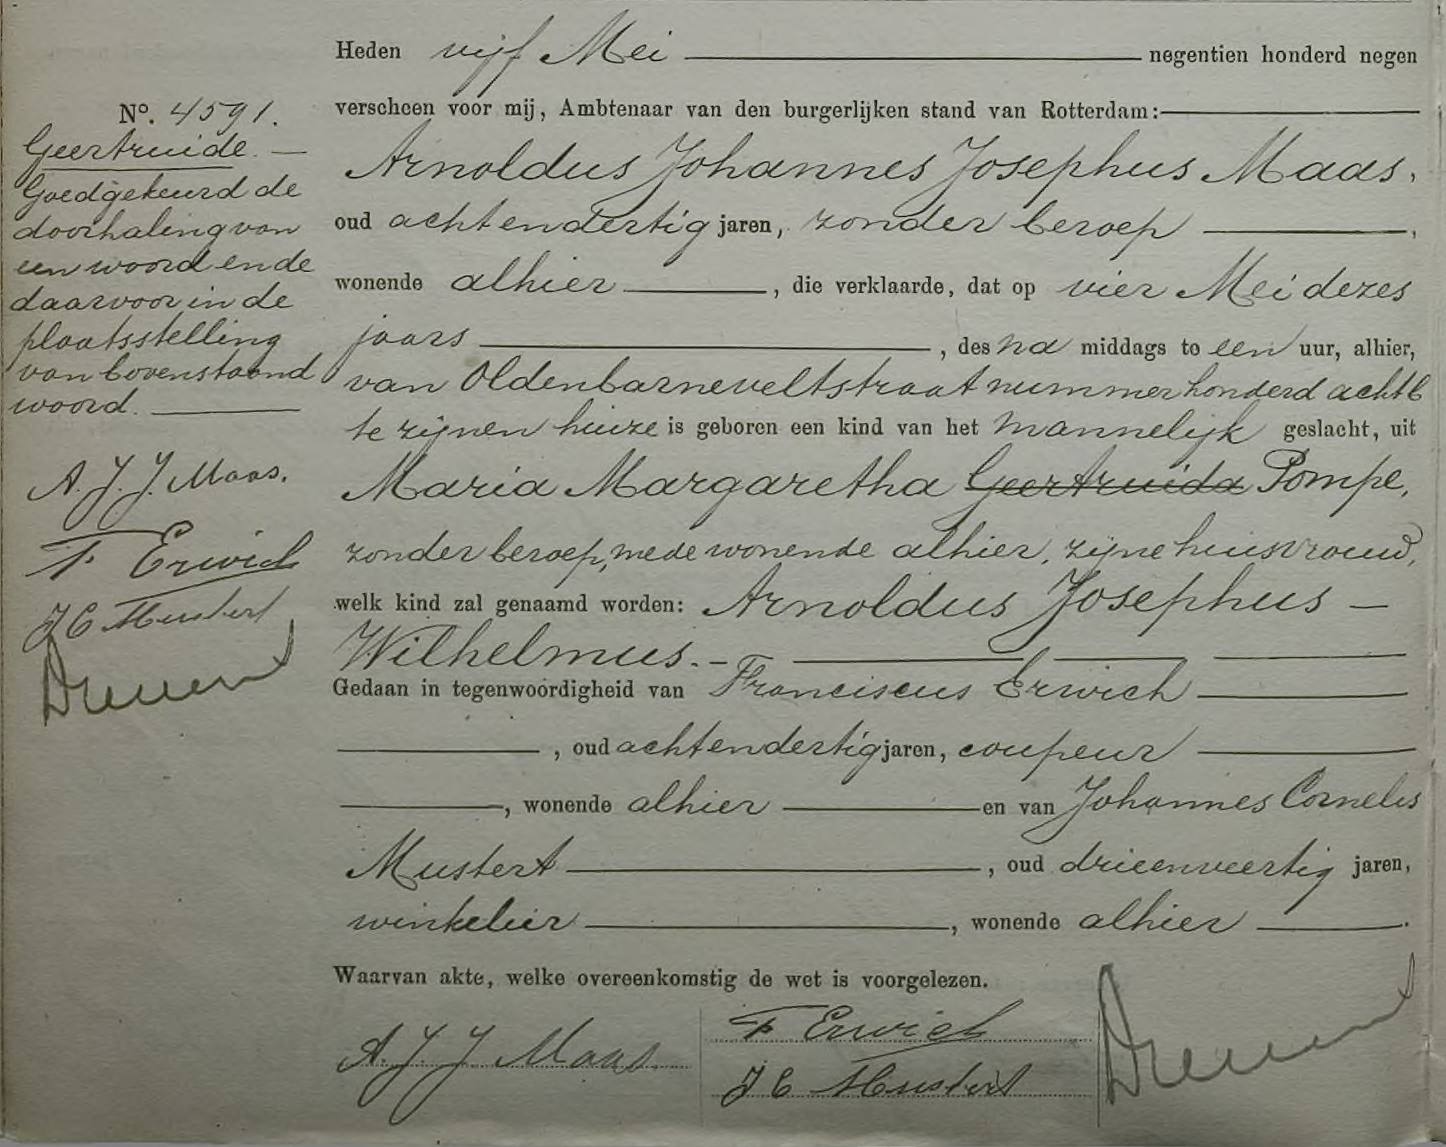 Nº. 4591.
Geertruide. —
Goedgekeurd de
doorhaling van
een woord en de
daarvoor in de
plaatsstelling
van bovenstaand
woord.
A. J. J. Maas.
F Erwich
J C Mustert
Heden vijf Mei negentien honderd negen
verscheen voor mij, Ambtenaar van den burgerlijken stand van Rotterdam:
Arnoldus Johannes Josephus Maas,
oud achtendertig jaren, zonder beroep,
wonende alhier, die verklaarde, dat op vier Mei dezes
jaars, des na middags te een uur, alhier,
van Oldenbarneveltstraat nummer honderd acht b
te zijnen huize is geboren een kind van het mannelijk geslacht, uit
Maria Margaretha Geertruida Pompe,
zonder beroep, mede wonende alhier, zijne huisvrouw,
welk kind zal genaamd worden: Arnoldus Josephus —
Wilhelmus. —
Gedaan in tegenwoordigheid van Franciscus Erwich
, oud achtendertig jaren, coupeur
, wonende alhier en van Johannes Cornelis
Mustert, oud drieenveertig jaren,
winkelier, wonende alhier.
Waarvan akte, welke overeenkomstig de wet is voorgelezen.
A. J. J Maas.
F Erwich
J C Mustert